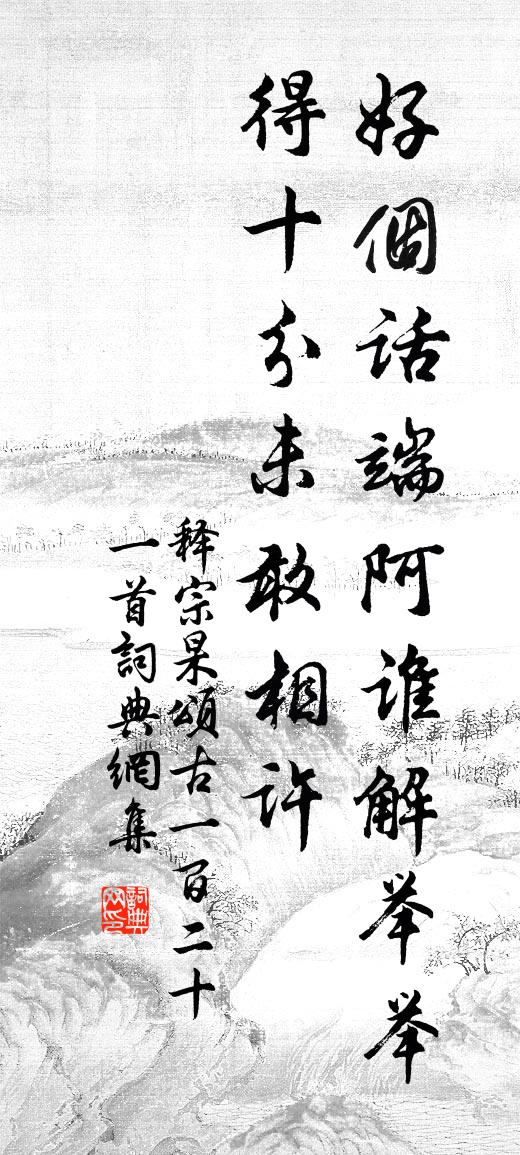 好個話端阿谁解举举
得十分未敢相許
释宗杲頌古一百二十
一首詞典網集
詞典网印